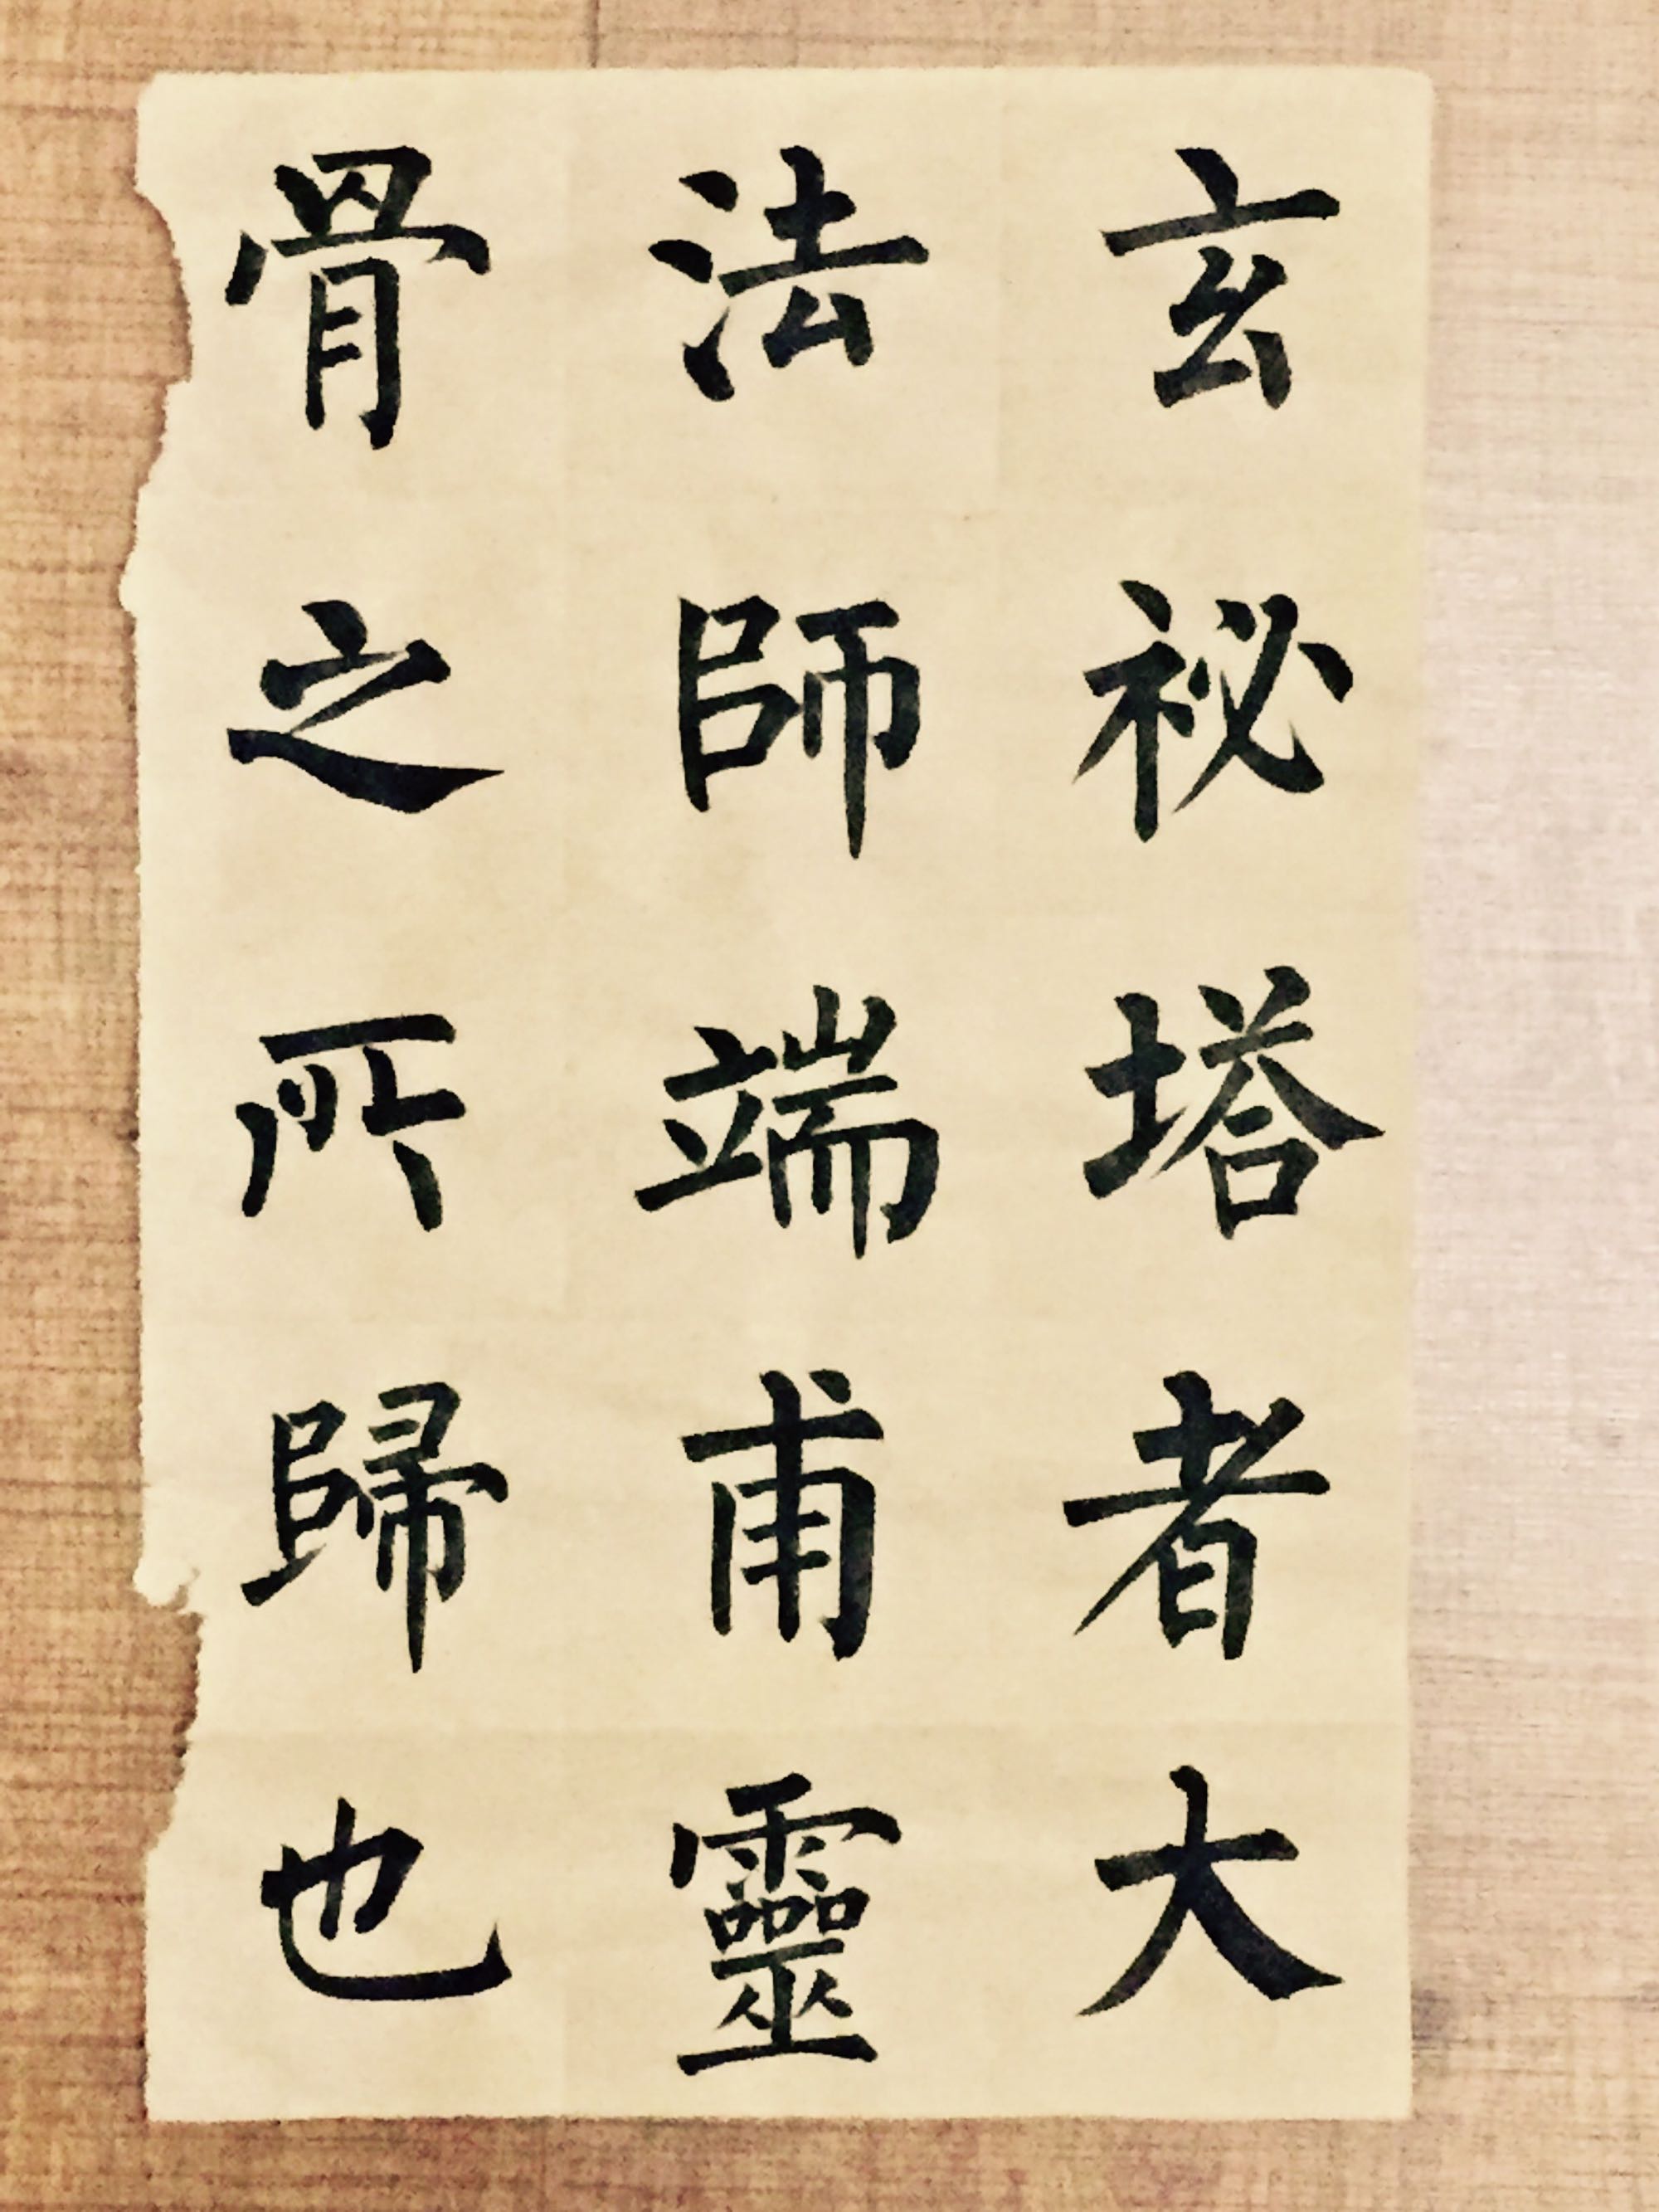 玄祕塔者大
法師端甫靈
骨之所歸也